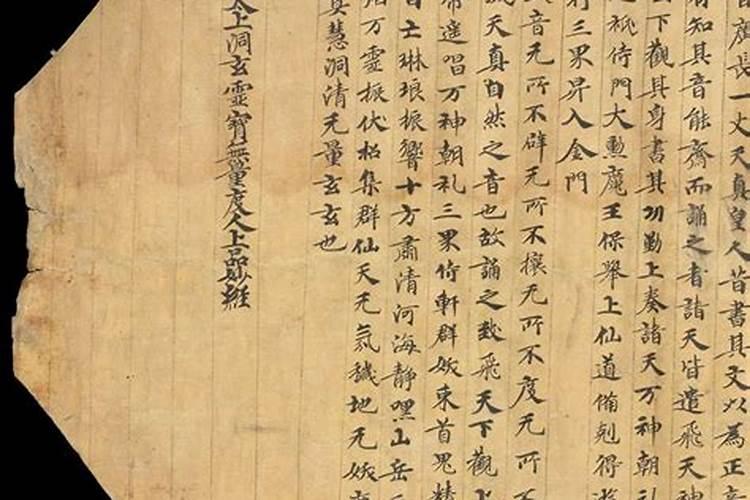 廣長一丈天真皇人昔書其文以為正音
有知其音能齋而誦之者諸天皆遣飛天神
下觀其身書其功勤上奏諸天万神朝礼
祇侍門大勳魔王保舉上仙道備剋得遊
行三界昇入金門
音无所不辟无所不禳无所不度无所不
成天真自然之音也故誦之致飛天下觀上
帝遥唱万神朝礼三界侍軒群妖束首鬼精
自亡琳琅振響十方肅清河海靜嘿山岳
万靈振伏招集群仙天无氛穢地无妖
慧洞清无量玄玄也
太上洞玄靈寶無量度人上品妙經